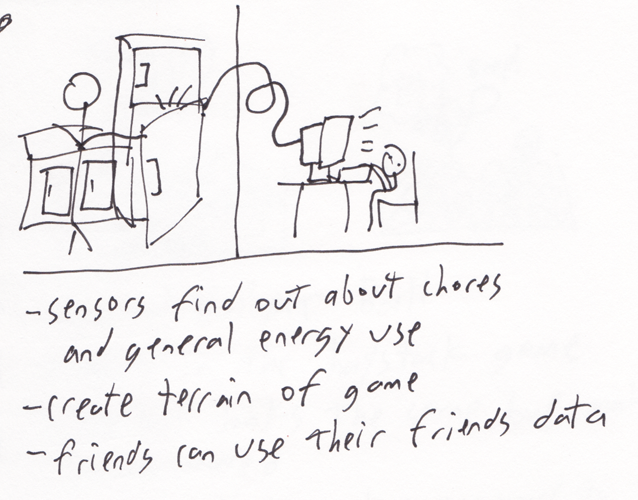 -sensors find out about chores
and general energy use
-create terrain of game
-friends can use their friends data